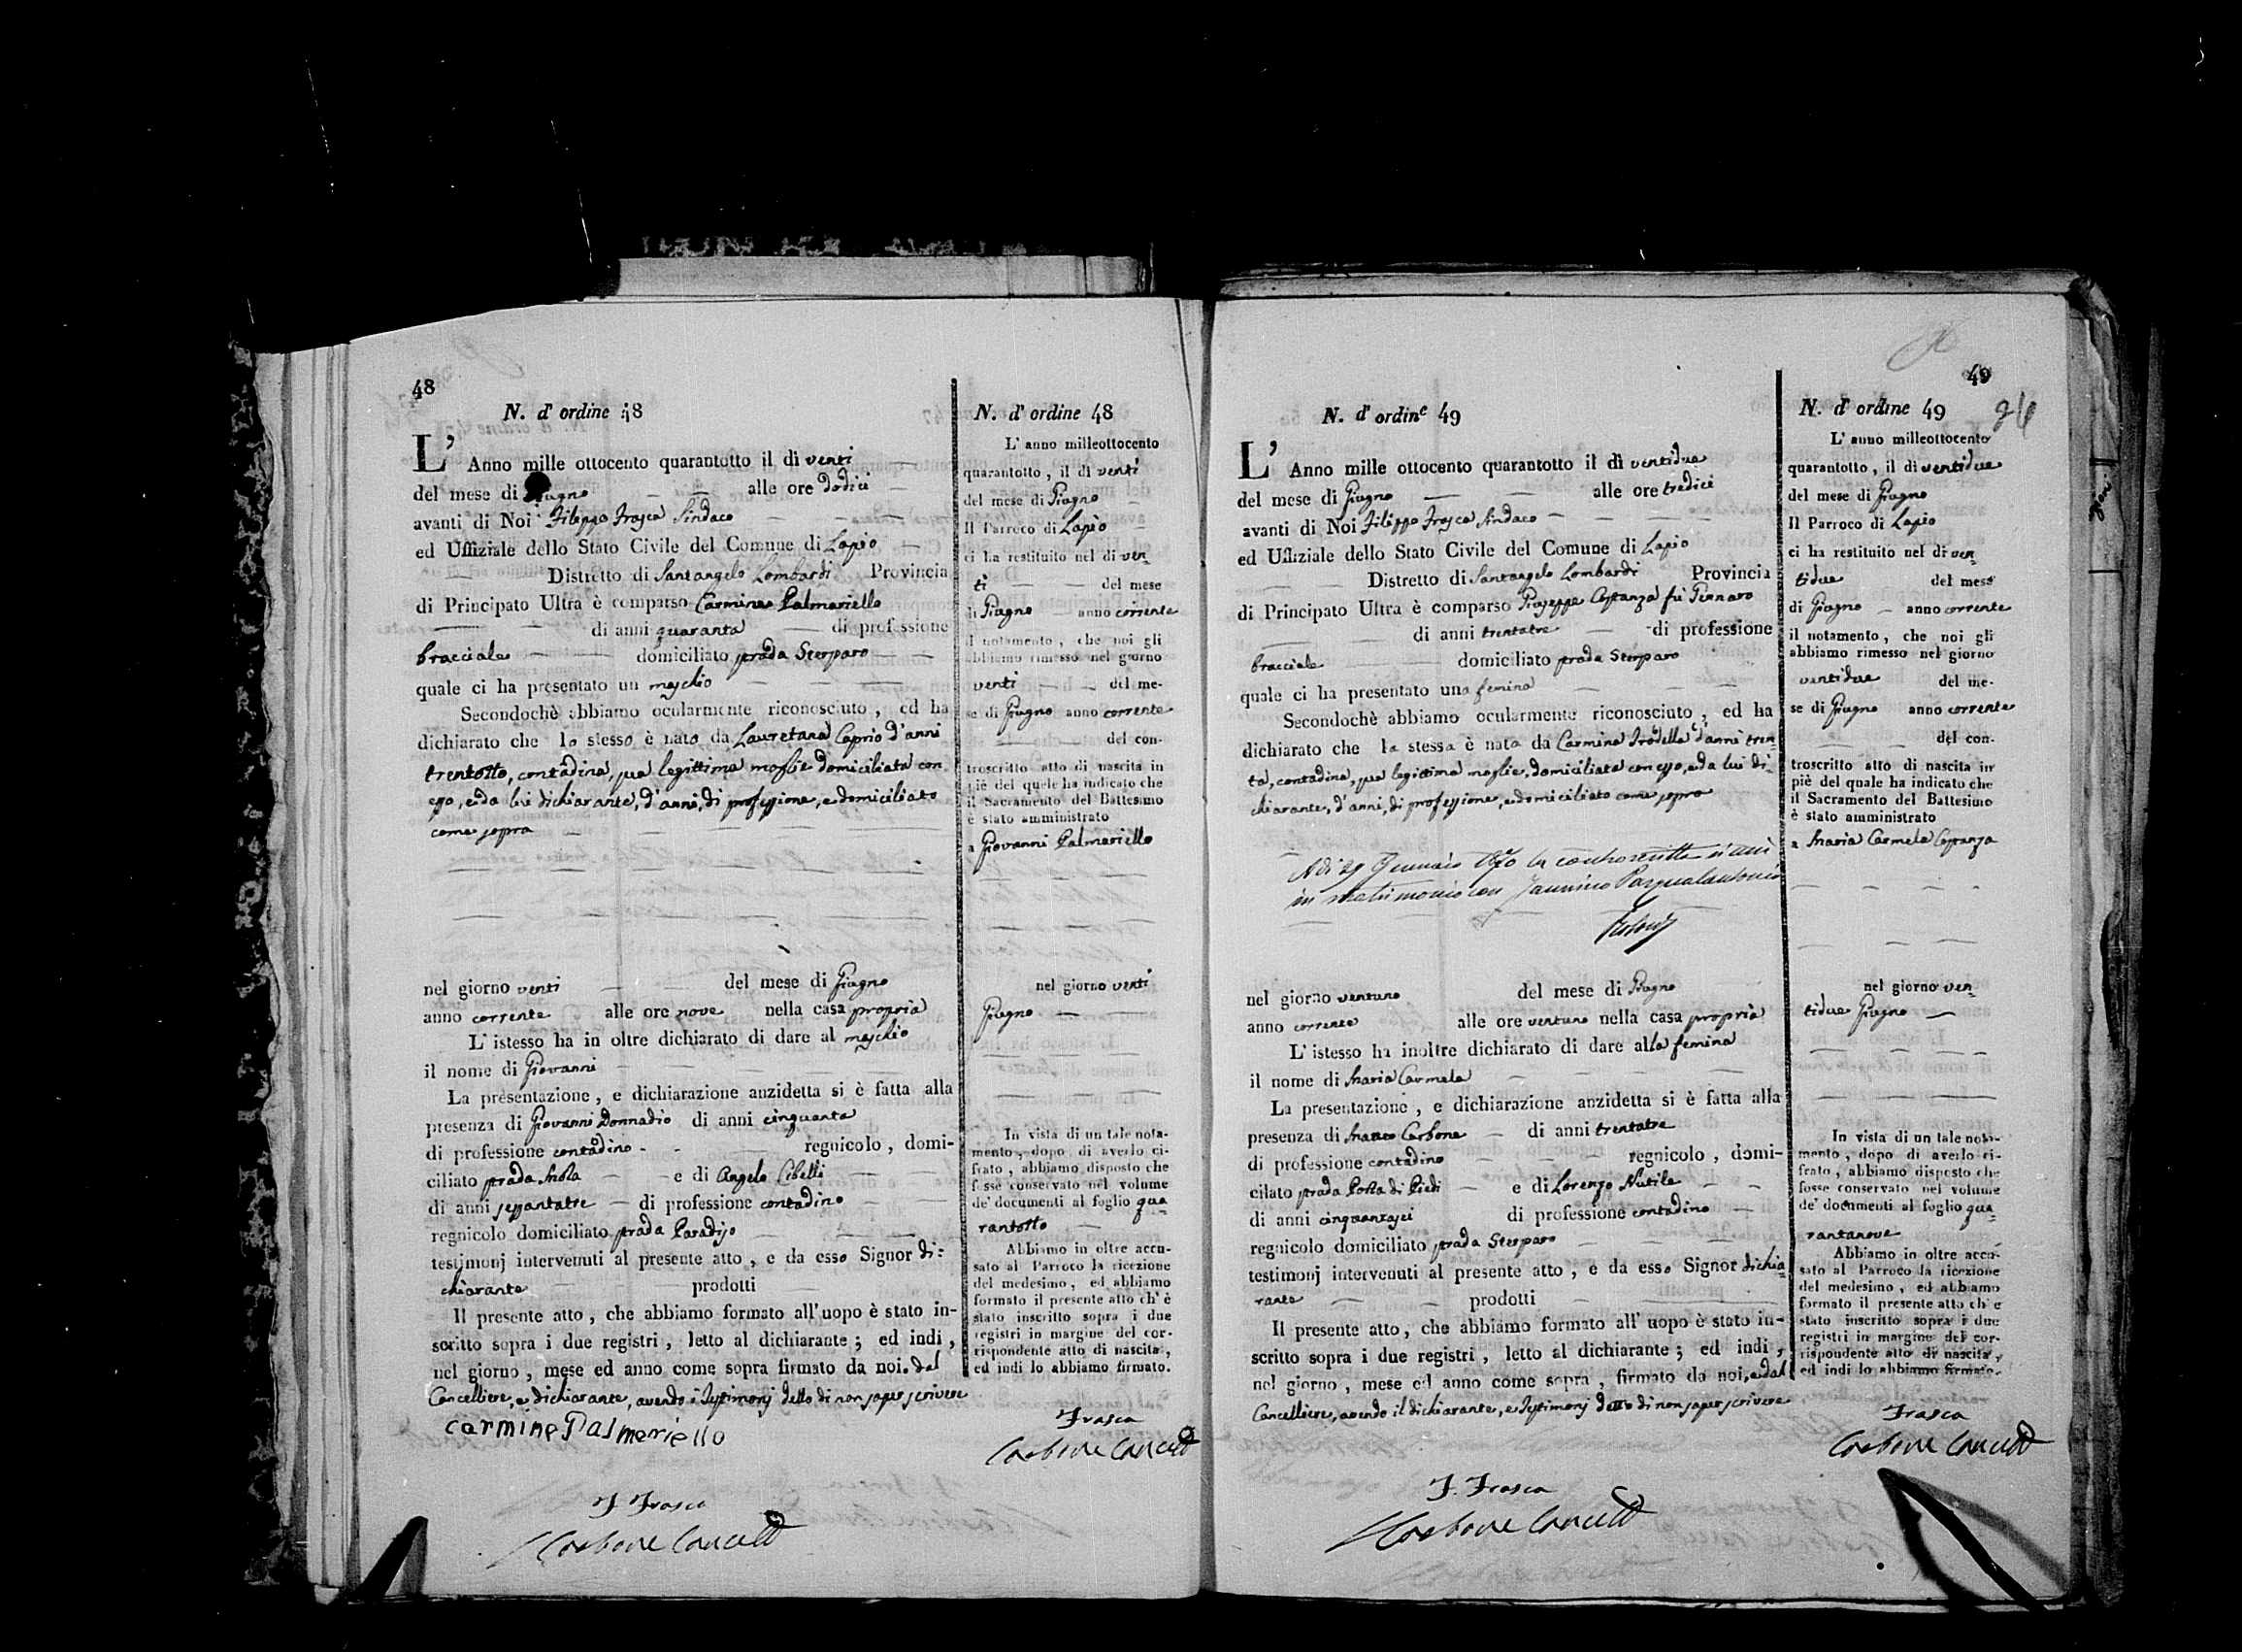 48
N. d' ordine 48
L' Anno mille ottocento quarantotto il dì venti
del mese di Giugno alle ore dodici
avanti di Noi Filippo Frasca Sindaco
ed Uffiziale dello Stato Civile del Comune di Lapio
Distretto di Santangelo Lombardi Provincia
di Principato Ultra è comparso Carmine Palmariello
di anni quaranta di professione
bracciale domiciliato strada Sterparo
quale ci ha presentato un maschio
Secondochè abbiamo ocularmente riconosciuto, ed ha
dichiarato che lo stesso è nato da Lauretana Caprio d'anni
trentotto, contadina, sua legittima moglie domiciliata con
esso, e da lui dichiarante, d'anni, di professione, e domiciliato
come sopra
nel giorno venti del mese di Giugno
anno corrente alle ore nove nella casa propria
L' istesso ha in oltre dichiarato di dare al maschio
il nome di Giovanni
La presentazione, e dichiarazione anzidetta si è fatta alla
presenza di Giovanni Donnadio di anni cinquanta
di professione contadino regnicolo, domi-
ciliato strada e di Angelo Cibelli
di anni sessantatre di professione contadino
regnicolo domiciliato strada Paradiso
testimonj intervenuti al presente atto, e da esso Signor di=
chiarante prodotti
Il presente atto, che abbiamo formato all'uopo è stato in-
scritto sopra i due registri, letto al dichiarante; ed indi,
nel giorno, mese ed anno come sopra firmato da noi. dal
Cancelliere, e dichiarante, avendo i Testimonj detto di non saper scrivere
Carmine Palmeriello
F Frasca
Carbone Cancell
N. d' ordine 48
L' anno milleottocento
quarantotto, il dì venti
del mese di Giugno
Il Parroco di Lapio
ci ha restituito nel dì ven=
ti del mese
di Giugno anno corrente
il notamento, che noi gli
abbiamo rimesso nel giorno
venti del me-
se di Giugno anno corrente
del con-
troscritto atto di nascita in
piè del quele ha indicato che
il Sacramento del Battesimo
è stato amministrato
a Giovanni Palmariello
nel giorno venti
Giugno
In vista di un tale nota-
mento, dopo di averlo ci-
frato, abbiamo disposto che
fosse conservato nel volume
de' documenti al foglio qua=
rantotto
Abbiamo in oltre accu-
sato al Parroco la ricezione
del medesimo, ed abbiamo
formato il presente atto ch' è
stato inscritto sopra i due
registri in margine del cor-
rispondente atto di nascita,
ed indi lo abbiamo firmato.
Frasca
Carbone Cancell
49
N. d' ordine 49
L' Anno mille ottocento quarantotto il dì ventidue
del mese di Giugno alle ore tredici
avanti di Noi Filippo Frasca Sindaco
ed Uffiziale dello Stato Civile del Comune di Lapio
Distretto di Santangelo Lombardi Provincia
di Principato Ultra è comparso Giuseppe Costanza fu Gennaro
di anni trentatre di professione
bracciale domiciliato strada Sterparo
quale ci ha presentato una femina
Secondochè abbiamo ocularmente riconosciuto, ed ha
dichiarato che la stessa è nata da Carmina d'anni tren=
ta, contadina, sua legittima moglie, domiciliata con esso, e da lui di=
chiarante, d'anni, di professione, e domiciliato come sopra
A dì 29 Gennaio 1870 la controscritta si unì
in matrimonio con Jannino Pasqualantonio
nel giorno ventuno del mese di Giugno
anno corrente alle ore ventuno nella casa propria
L' istesso ha inoltre dichiarato di dare alla femina
il nome di Maria Carmela
La presentazione, e dichiarazione anzidetta si è fatta alla
presenza di Marco Carbone di anni trentatre
di professione contadino regnicolo, domi-
cilato strada Porta di Piedi e di Lorenzo Nutile
di anni cinquantasei di professione contadino
regnicolo domiciliato strada Sterparo
testimonj intervenuti al presente atto, e da esso Signor dichia=
rante prodotti
Il presente atto, che abbiamo formato all' uopo è stato in-
scritto sopra i due registri, letto al dichiarante; ed indi,
nel giorno, mese ed anno come sopra, firmato da noi, e dal
Cancelliere, avendo il dichiarante, e Testimonj detto di non saper scrivere
F. Frasca
Carbone Cancell
N. d' ordine 49
L' anno milleottocento
quarantotto, il dì ventidue
del mese di Giugno
Il Parroco di Lapio
ci ha restituito nel dì ven=
tidue del mese
di Giugno anno corrente
il notamento, che noi gli
abbiamo rimesso nel giorno
ventidue del me-
se di Giugno anno corrente
del con-
troscritto atto di nascita in
piè del quale ha indicato che
il Sacramento del Battesimo
è stato amministrato
a Maria Carmela Costanza
nel giorno ven=
tidue Giugno
In vista di un tale nota-
mento, dopo di averlo ci-
frato, abbiamo disposto che
fosse conservato nel volume
de' documenti al foglio qua=
rantanove
Abbiamo in oltre accu-
sato al Parroco la ricezione
del medesimo, ed abbiamo
formato il presente atto ch' è
stato inscritto sopra i due
registri in margine del cor-
rispondente atto di nascita,
ed indi lo abbiamo firmato.
Frasca
Carbone Cancell